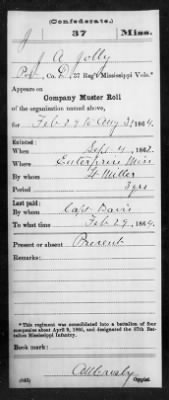 (Confederate.)
J 37 Miss.
J A Jolly
Pvt, Co. D, 37 Reg't Mississippi Vols.*
Appears on
Company Muster Roll
of the organization named above,
for Feb 29 to Aug 31, 1864.
Enlisted:
When Sept 4, 1862.
Where Enterprise Miss
By whom Lt Miller
Period 3 yrs
Last paid:
By whom Capt Davis
To what time Feb 29, 1864.
Present or absent Present
Remarks:
*This regiment was consolidated into a battalion of four
companies about April 9, 1865, and designated the 37th Bat-
talion Mississippi Infantry.
Book mark:
(642) Copyist.